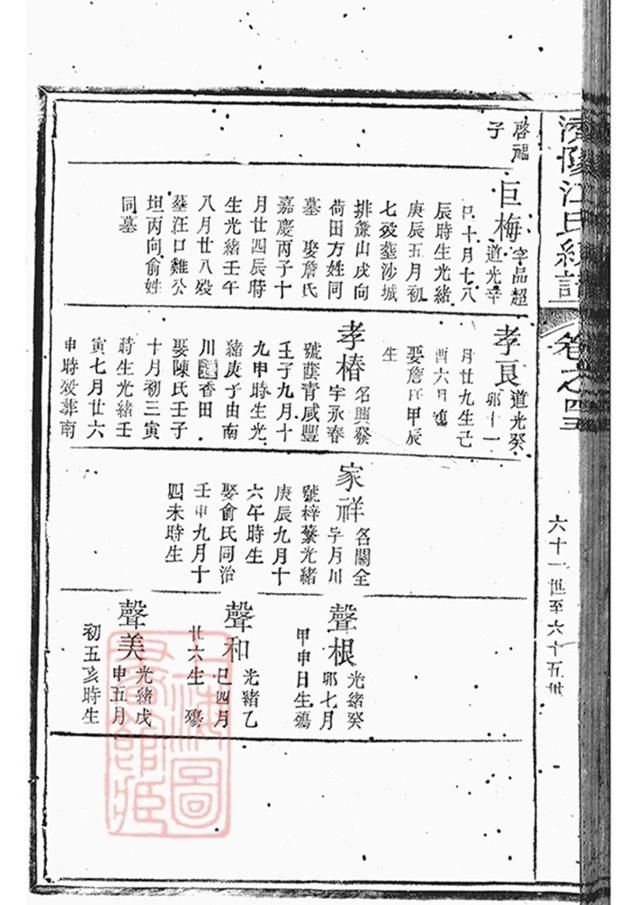 濟陽江氏統譜
卷之四三
六十一世至六十五世
啓福
子
巨梅
字品超
道光辛
巳十月十八
辰時生光緒
庚辰五月初
七歿塟沙城
排彙山戌向
荷田方姓同
墓 娶詹氏
嘉慶丙子十
月廿四辰時
生光緒壬午
八月廿八歿
塟汪口雞公
坦丙向俞姓
同墓
孝良
道光癸
卯十一
月廿九生己
酉六日殤
娶詹氏甲辰
生
孝椿
名興發
字永春
號蔭青咸豐
壬子九月十
九申時生光
緒庚子由南
川遷香田
娶陳氏壬子
十月初三寅
時生光緒壬
寅七月廿六
申時歿葬南
家祥
名關全
字月川
號梓蘩光緒
庚辰九月十
六午時生
娶俞氏同治
壬申九月十
四未時生
聲根
光緒癸
卯七月
甲申日生殤
聲和
光緒乙
巳四月
廿六生 殤
聲美
光緒戊
申五月
初五亥時生
圖